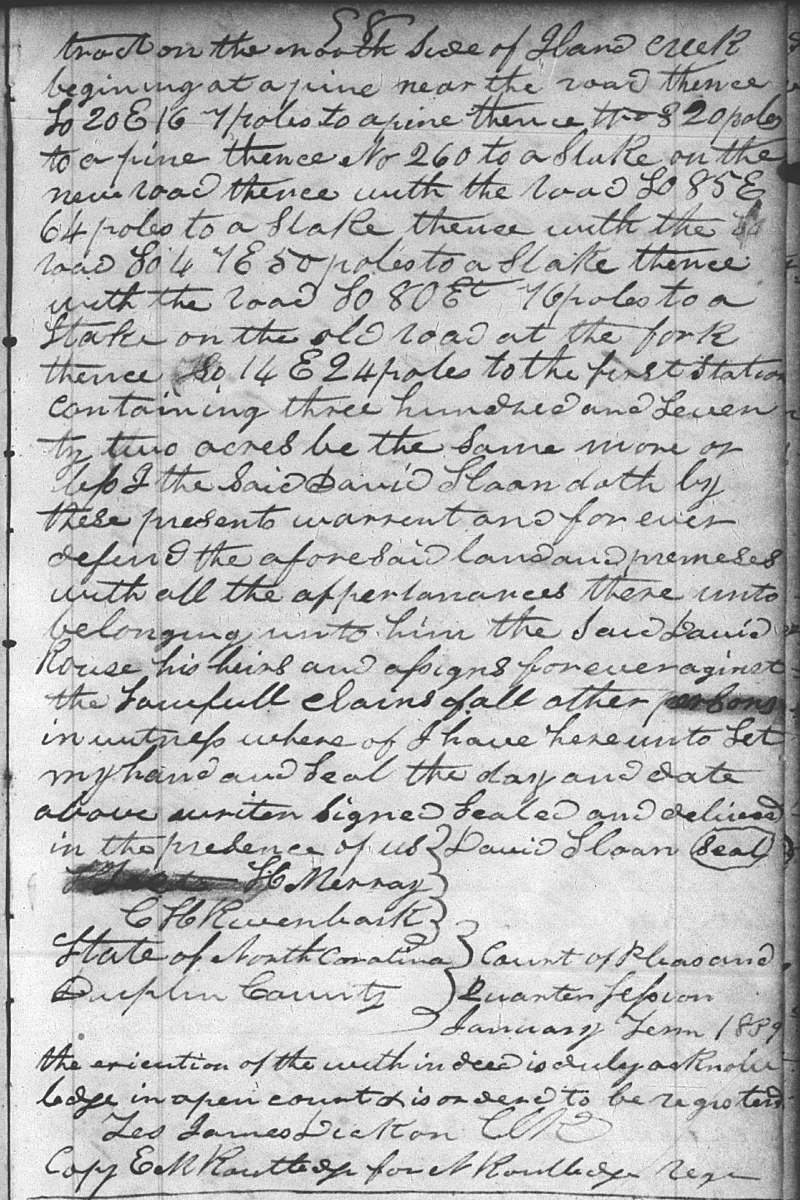 58
tract on the north Side of Iland creek
begining at a pine near the road thence
So 20 E 167 poles to a pine thence 820 poles
to a pine thence No 260 to a Stake on the
new road thence with the road So 85 E
64 poles to a Stake thence with the
road So 47 E 50 poles to a Stake thence
with the road So 80 Et 76 poles to a
Stake on the old road at the fork
thence So 14 E 24 poles to the first Station
containing three hundred and Seven
ty two acres be the Same more or
less I the Said David Sloan doth by
these presents warrent and for ever
defend the aforesaid land and premeses
with all the appertanances there unto
belonging unto him the Said David
Rouse his heirs and assigns forever aginst
the Lawfull claims of all other persons
in witness where of I have here unto Set
my hand and Seal the day and date
above writen Signed Sealed and deliverd
in the presence of us } David Sloan Seal
H Merray
C H Rivenbark
State of North Carolina } Court of Pleas and
Duplin County } Quarter Session
January Term 1839
the exicution of the with in deed is duly acknow
ledge in open court & is orderd to be registerd
Tes James Dickson Clk
Copy E M Routledge for N Routledge Regr